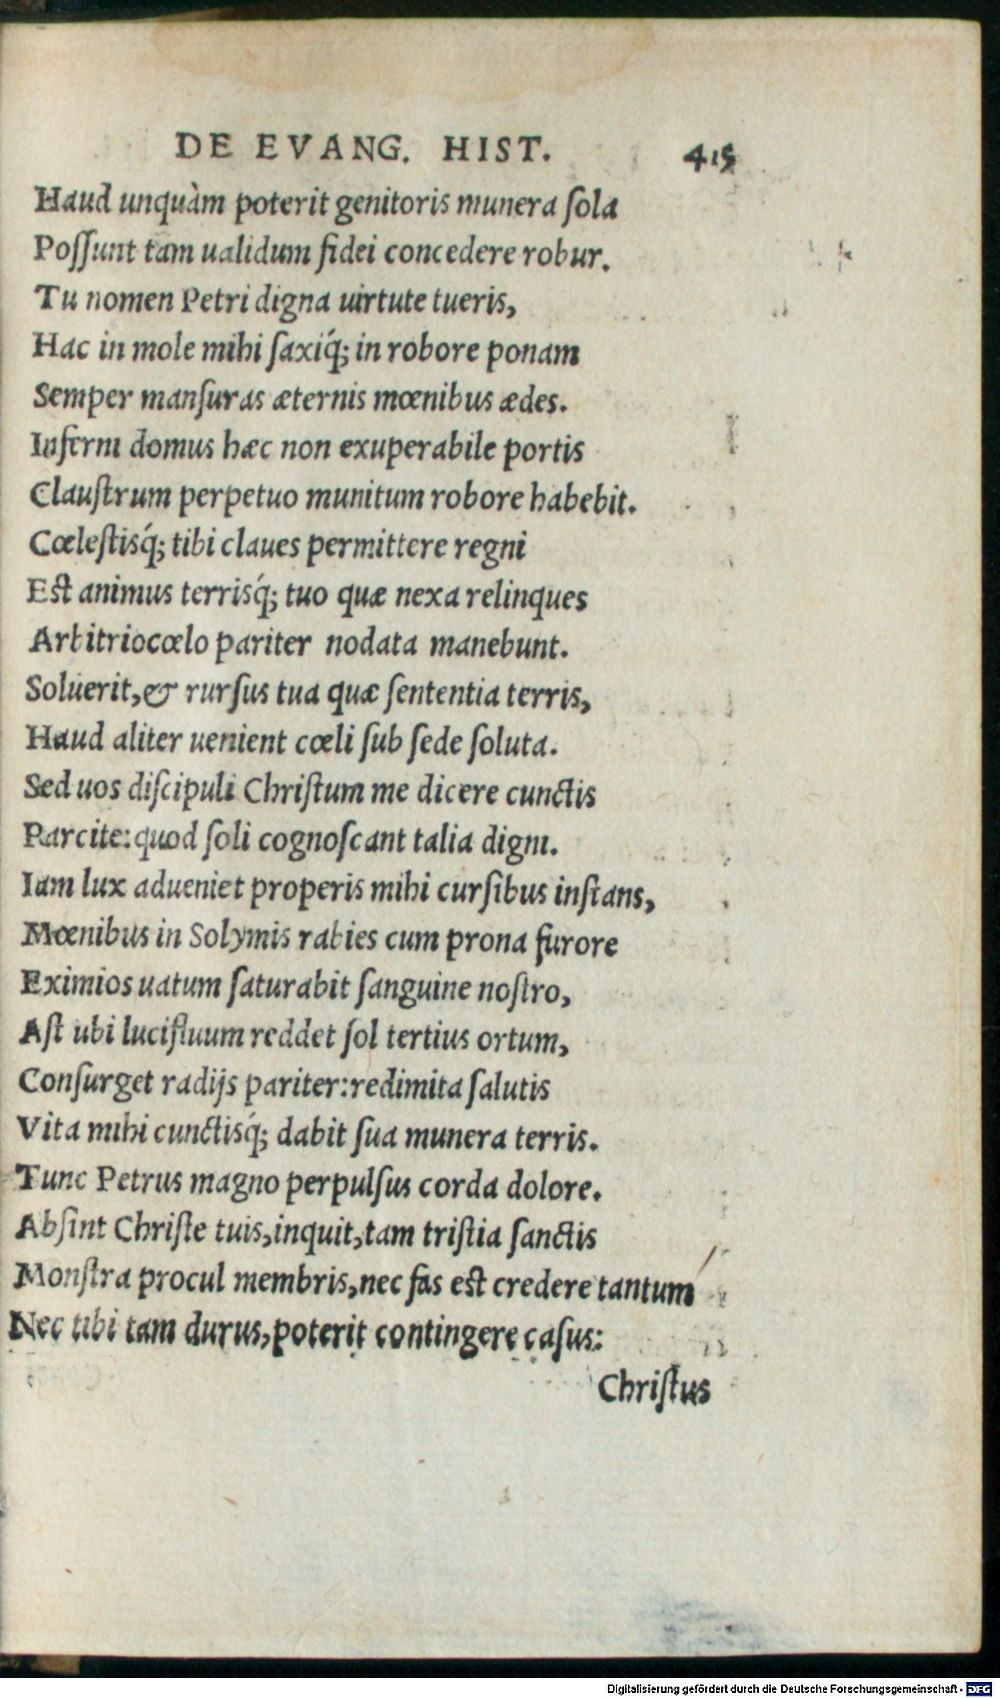 DE EVANG. HIST. 415
Haud unquàm poterit genitoris munera ſola
Poſſunt tam ualidum fidei concedere robur.
Tu nomen Petri digna uirtute tueris,
Hac in mole mihi ſaxiq́; in robore ponam
Semper manſuras æternis mœnibus ædes.
Inferni domus hæc non exuperabile portis
Clauſtrum perpetuo munitum robore habebit.
Cœleſtisq́; tibi claues permittere regni
Eſt animus terrisq́; tuo quæ nexa relinques
Arbitriocœlo pariter nodata manebunt.
Soluerit,& rurſus tua quæ ſententia terris,
Haud aliter uenient cœli ſub ſede ſoluta.
Sed uos diſcipuli Chriſtum me dicere cunctis
Parcite: quod ſoli cognoſcant talia digni.
Iam lux adueniet properis mihi curſibus inſtans,
Mœnibus in Solymis rabies cum prona furore
Eximios uatum ſaturabit ſanguine noſtro,
Aſt ubi lucifluum reddet ſol tertius ortum,
Conſurget radijs pariter:redimita ſalutis
Vita mihi cunctisq́; dabit ſua munera terris.
Tunc Petrus magno perpulſus corda dolore.
Abſint Chriſte tuis,inquit,tam triſtia ſanctis
Monſtra procul membris,nec fas eſt credere tantum
Nec tibi tam durus,poterit contingere caſus:
Chriſtus
Digitalisierung gefördert durch die Deutsche Forschungsgemeinschaft - DFG